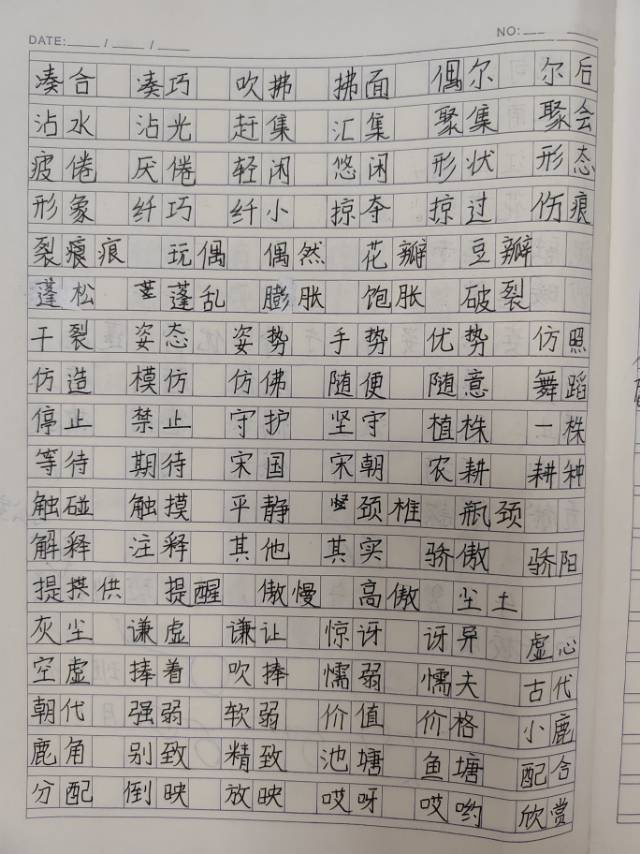 DATE: / / NO:
凑合 凑巧 吹拂 拂面 偶尔 尔后
沾水 沾光 赶集 汇集 聚集 聚会
疲倦 厌倦 轻闲 悠闲 形状 形态
形象 纤巧 纤小 掠夺 掠过 伤痕
裂痕痕 玩偶 偶然 花瓣 豆瓣
蓬松 蓬乱 膨胀 饱胀 破裂
干裂 姿态 姿势 手势 优势 仿照
仿造 模仿 仿佛 随便 随意 舞蹈
停止 禁止 守护 坚守 植株 一株
等待 期待 宋国 宋朝 农耕 耕种
触碰 触摸 平静 颈椎 瓶颈
解释 注释 其他 其实 骄傲 骄阳
提供 提醒 傲慢 高傲 尘土
灰尘 谦虚 谦让 惊讶 讶异 虚心
空虚 捧着 吹捧 懦弱 懦夫 古代
朝代 强弱 软弱 价值 价格 小鹿
鹿角 别致 精致 池塘 鱼塘 配合
分配 倒映 放映 哎呀 哎哟 欣赏